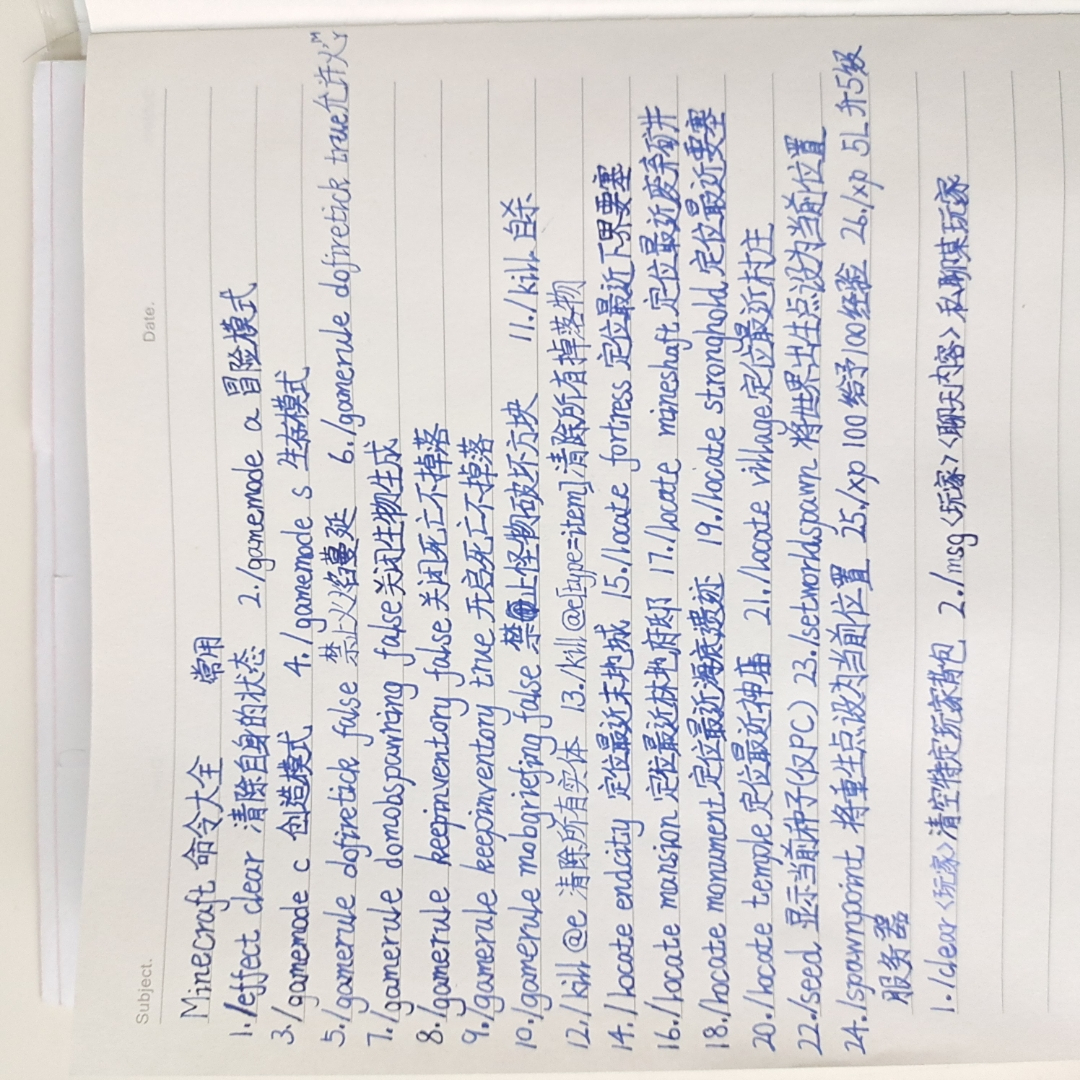 Subject.
Date.
Minecraft 命令大全 常用
1./effect clear 清除自身的状态 2./gamemode a 冒险模式
3./gamemode c 创造模式 4./gamemode s 生存模式
5./gamerule dofiretick false 禁止火焰蔓延 6./gamerule dofiretick true允许火
7./gamerule domobspawning false关闭生物生成
8./gamerule keepinventory false关闭死亡不掉落
9./gamerule keepinventory true 开启死亡不掉落
10./gamerule mobgriefing false 禁止怪物破坏方块 11./kill 自杀
12./kill @e 清除所有实体 13./kill @e[type=item]清除所有掉落物
14./locate endcity 定位最近末地城 15./locate fortress 定位最近下界要塞
16./locate mansion 定位最近林地府邸 17./locate mineshaft 定位最近废弃矿井
18./locate monument定位最近海底遗迹 19./locate stronghold定位最近要塞
20./locate temple定位最近神庙 21./locate village定位最近村庄
22./seed 显示当前种子(仅PC) 23./setworldspawn 将世界出生点设为当前位置
24./spawnpoint 将重生点设为当前位置 25./xp 100 给予100经验 26./xp 5L 升5级
服务器
1./clear<玩家>清空特定玩家背包 2./msg<玩家><聊天内容>私聊某玩家